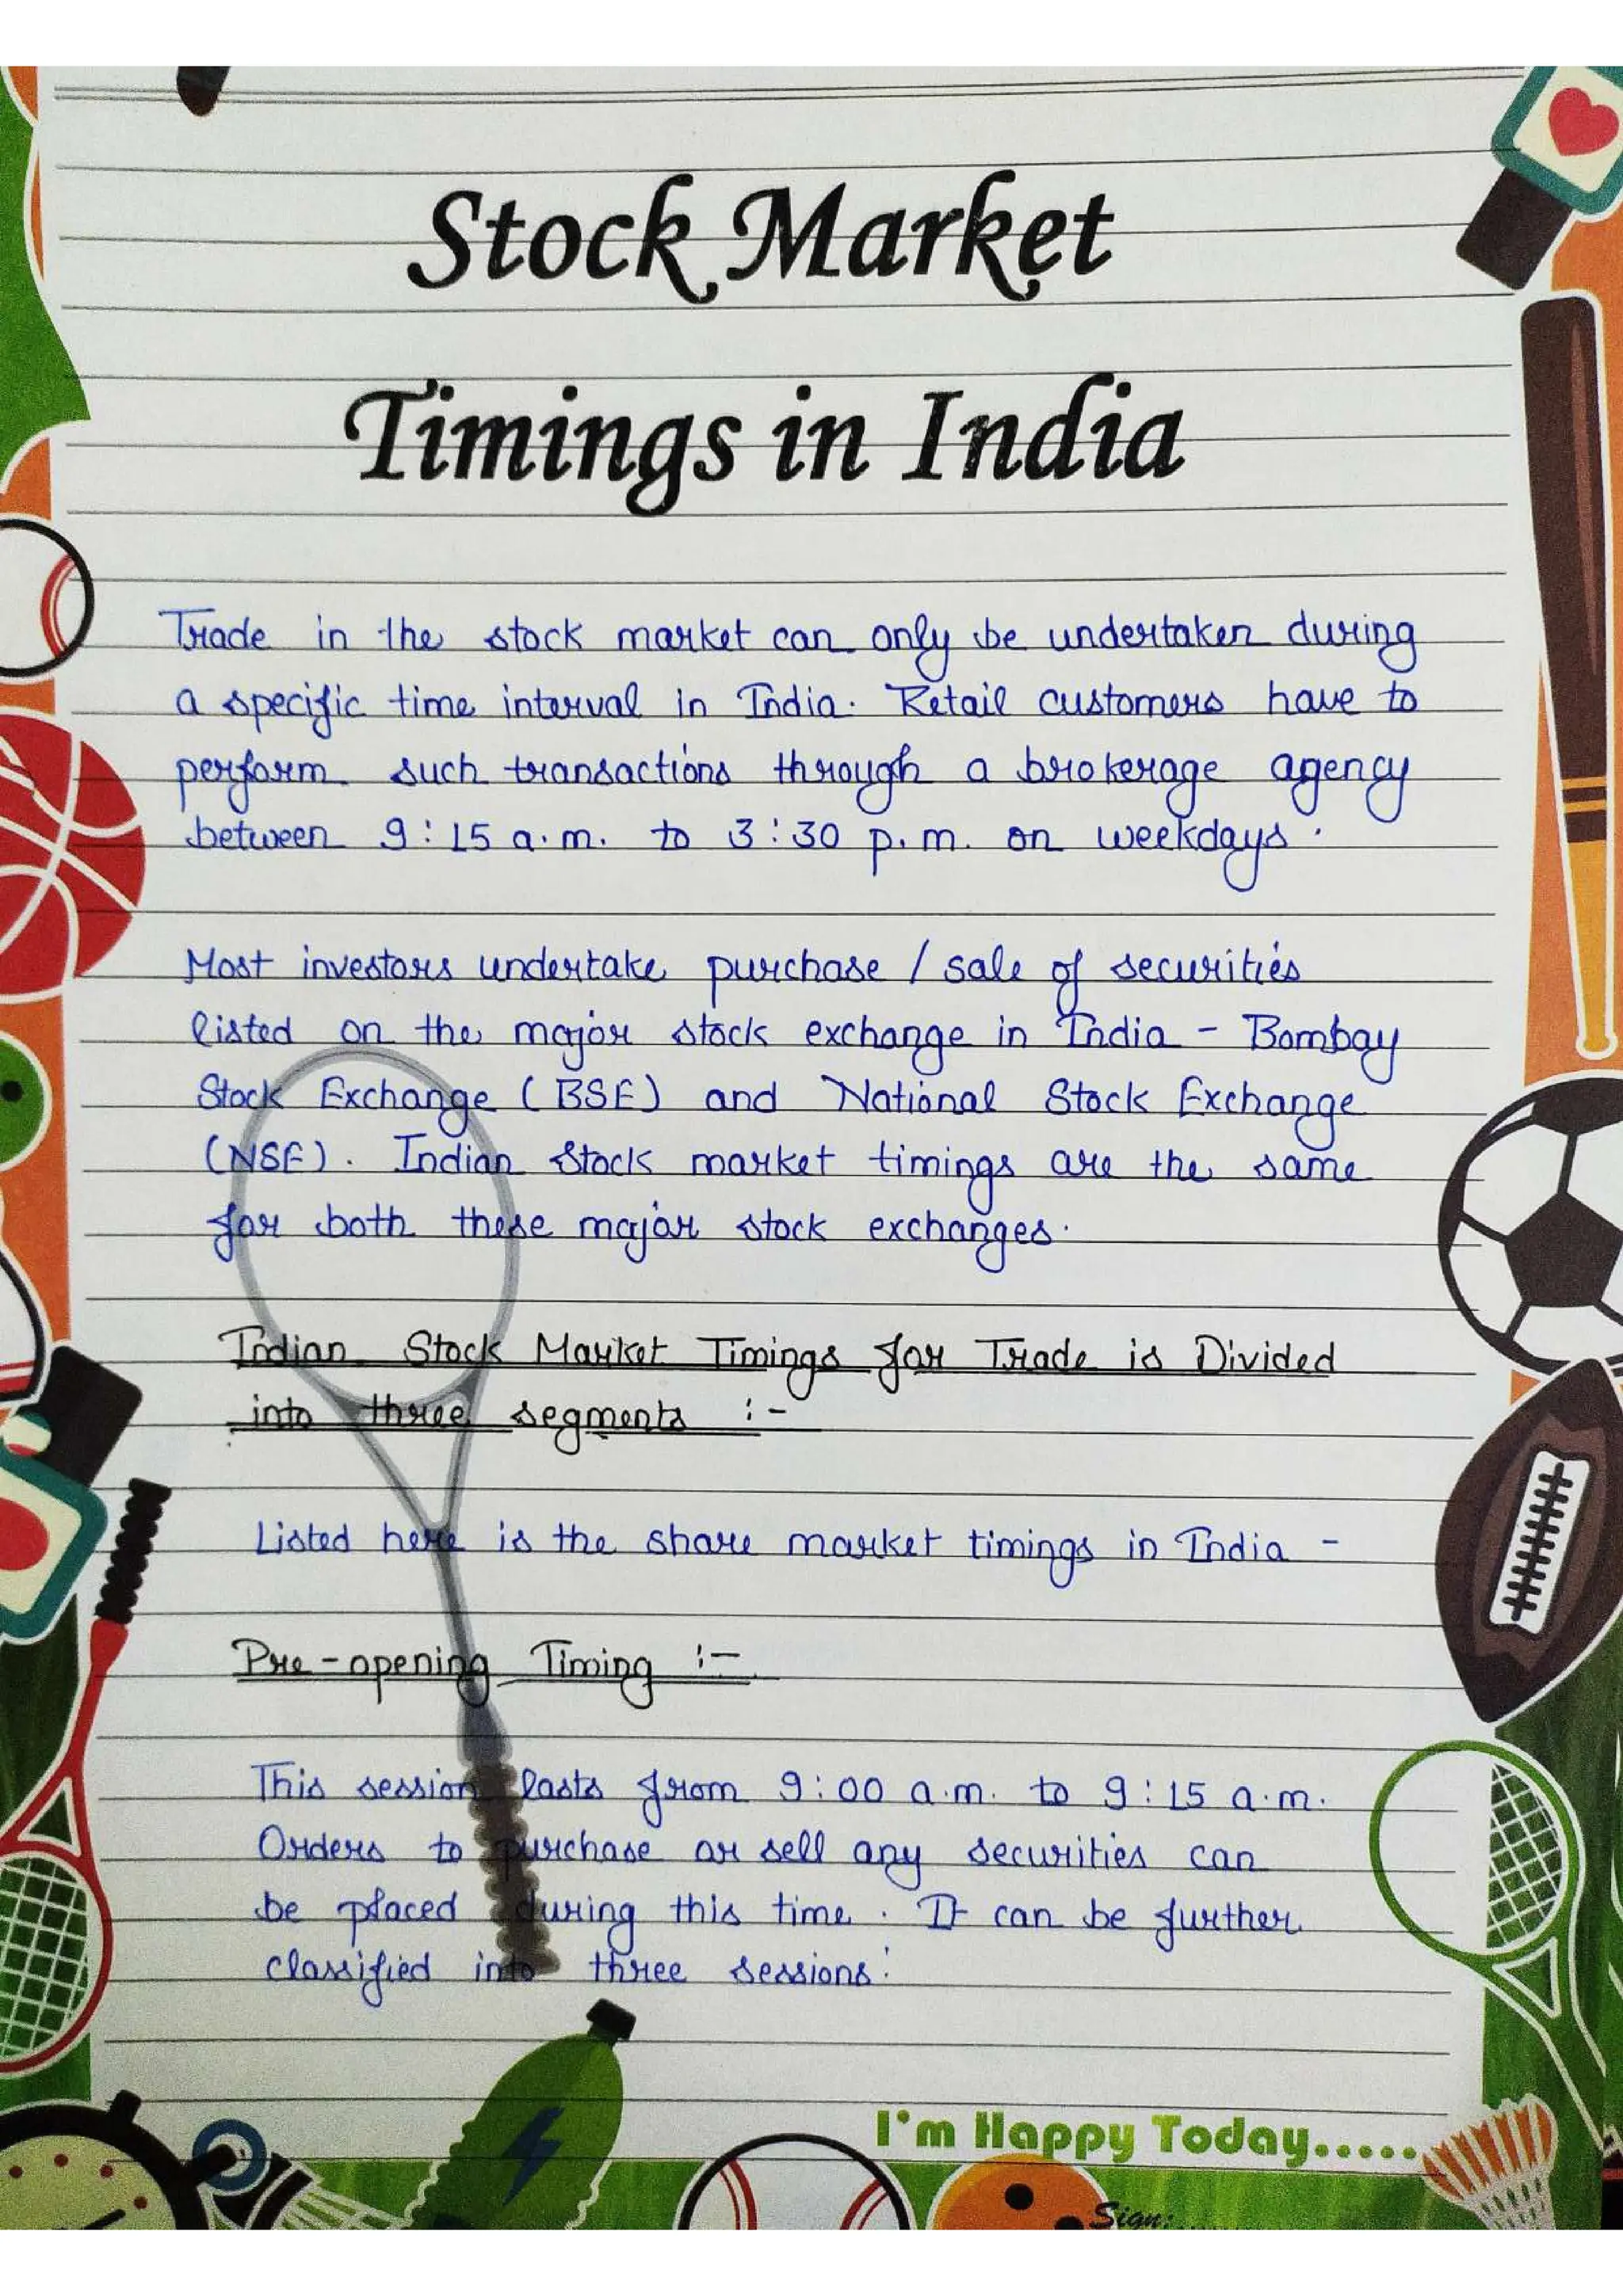 Stock Market
Timings in India
Trade in the stock market can only be undertaken during
a specific time interval in India. Retail customers have to
perform such transactions through a brokerage agency
between 9:15 a.m. to 3:30 p.m. on weekdays.
Most investors undertake purchase / sale of securities
listed on the major stock exchange in India - Bombay
Stock Exchange (BSE) and National Stock Exchange
(NSE). Indian Stock market timings are the same
for both these major stock exchanges.
Indian Stock Market Timings for Trade is Divided
into three segments :-
Listed here is the share market timings in India -
Pre-opening Timing :-
This session lasts from 9:00 a.m. to 9:15 a.m.
Orders to purchase or sell any securities can
be placed during this time. It can be further
classified into three sessions:
I'm Happy Today.....
Sign:.......